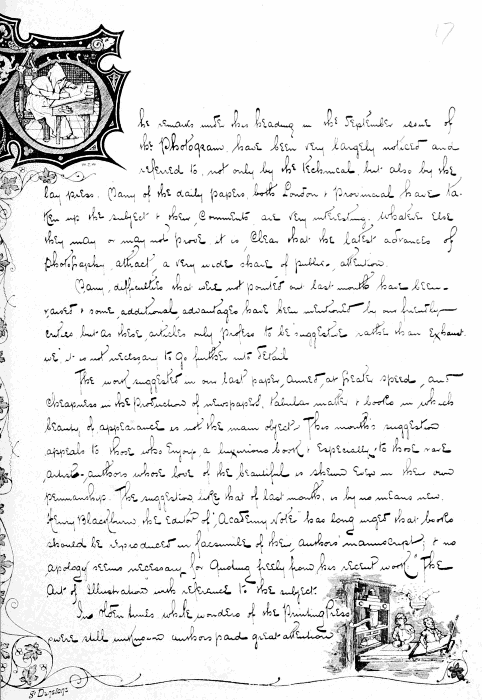 17
The remarks under this heading in the September issue of
the Photogram, have been very largely noticed and
referred to, not only by the technical but also by the
lay press. Many of the daily papers, both London & Provincial have ta-
ken up the subject & their comments are very interesting. Whatever else
they may or may not prove, it is clear that the latest advances of
Photography attract, a very wide share of public attention.
Many, difficulties that were not pointed out last month have been
raised & some additional advantages have been mentioned by our friendly
critics but as these articles only profess to be suggestive rather than exhaust-
ive it is not necessary to go further into detail
The work suggested in our last paper, aimed, at greater speed, and
cheapness in the production of newspapers, tabular matter & books in which
beauty of appearance is not the main object. This month's suggestion
appeals to those who enjoy, a luxurious book & especially to those rare
artistic authors whose love of the beautiful is shewn even in their own
penmanship. The suggestion, like that of last month, is by no means new.
Henry Blackburn the Editor of "Academy Notes" has long urged that books
should be reproduced in facsimile of the authors' manuscript, & no
apology seems necessary for quoting freely from his recent work "The
Art of Illustration" with reference to the subject.
In olden times while wonders of the Printing Press
were still unknown authors paid great attention